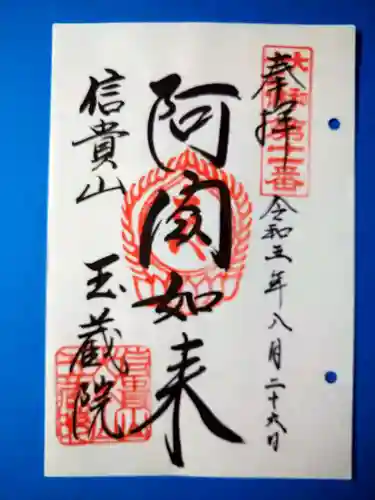 奉拝
大和第二番
令和三年八月二十六日
阿閦如来
信貴山
玉蔵院